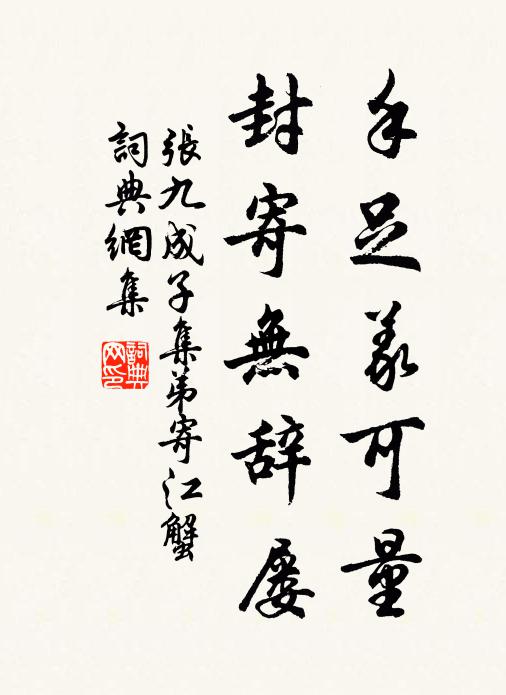 手足義可量
封寄無辞屡
張九成子集弟寄江蟹
詞典網集
詞典網印